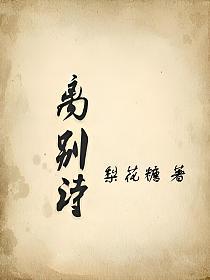 离别诗
梨花糖 著